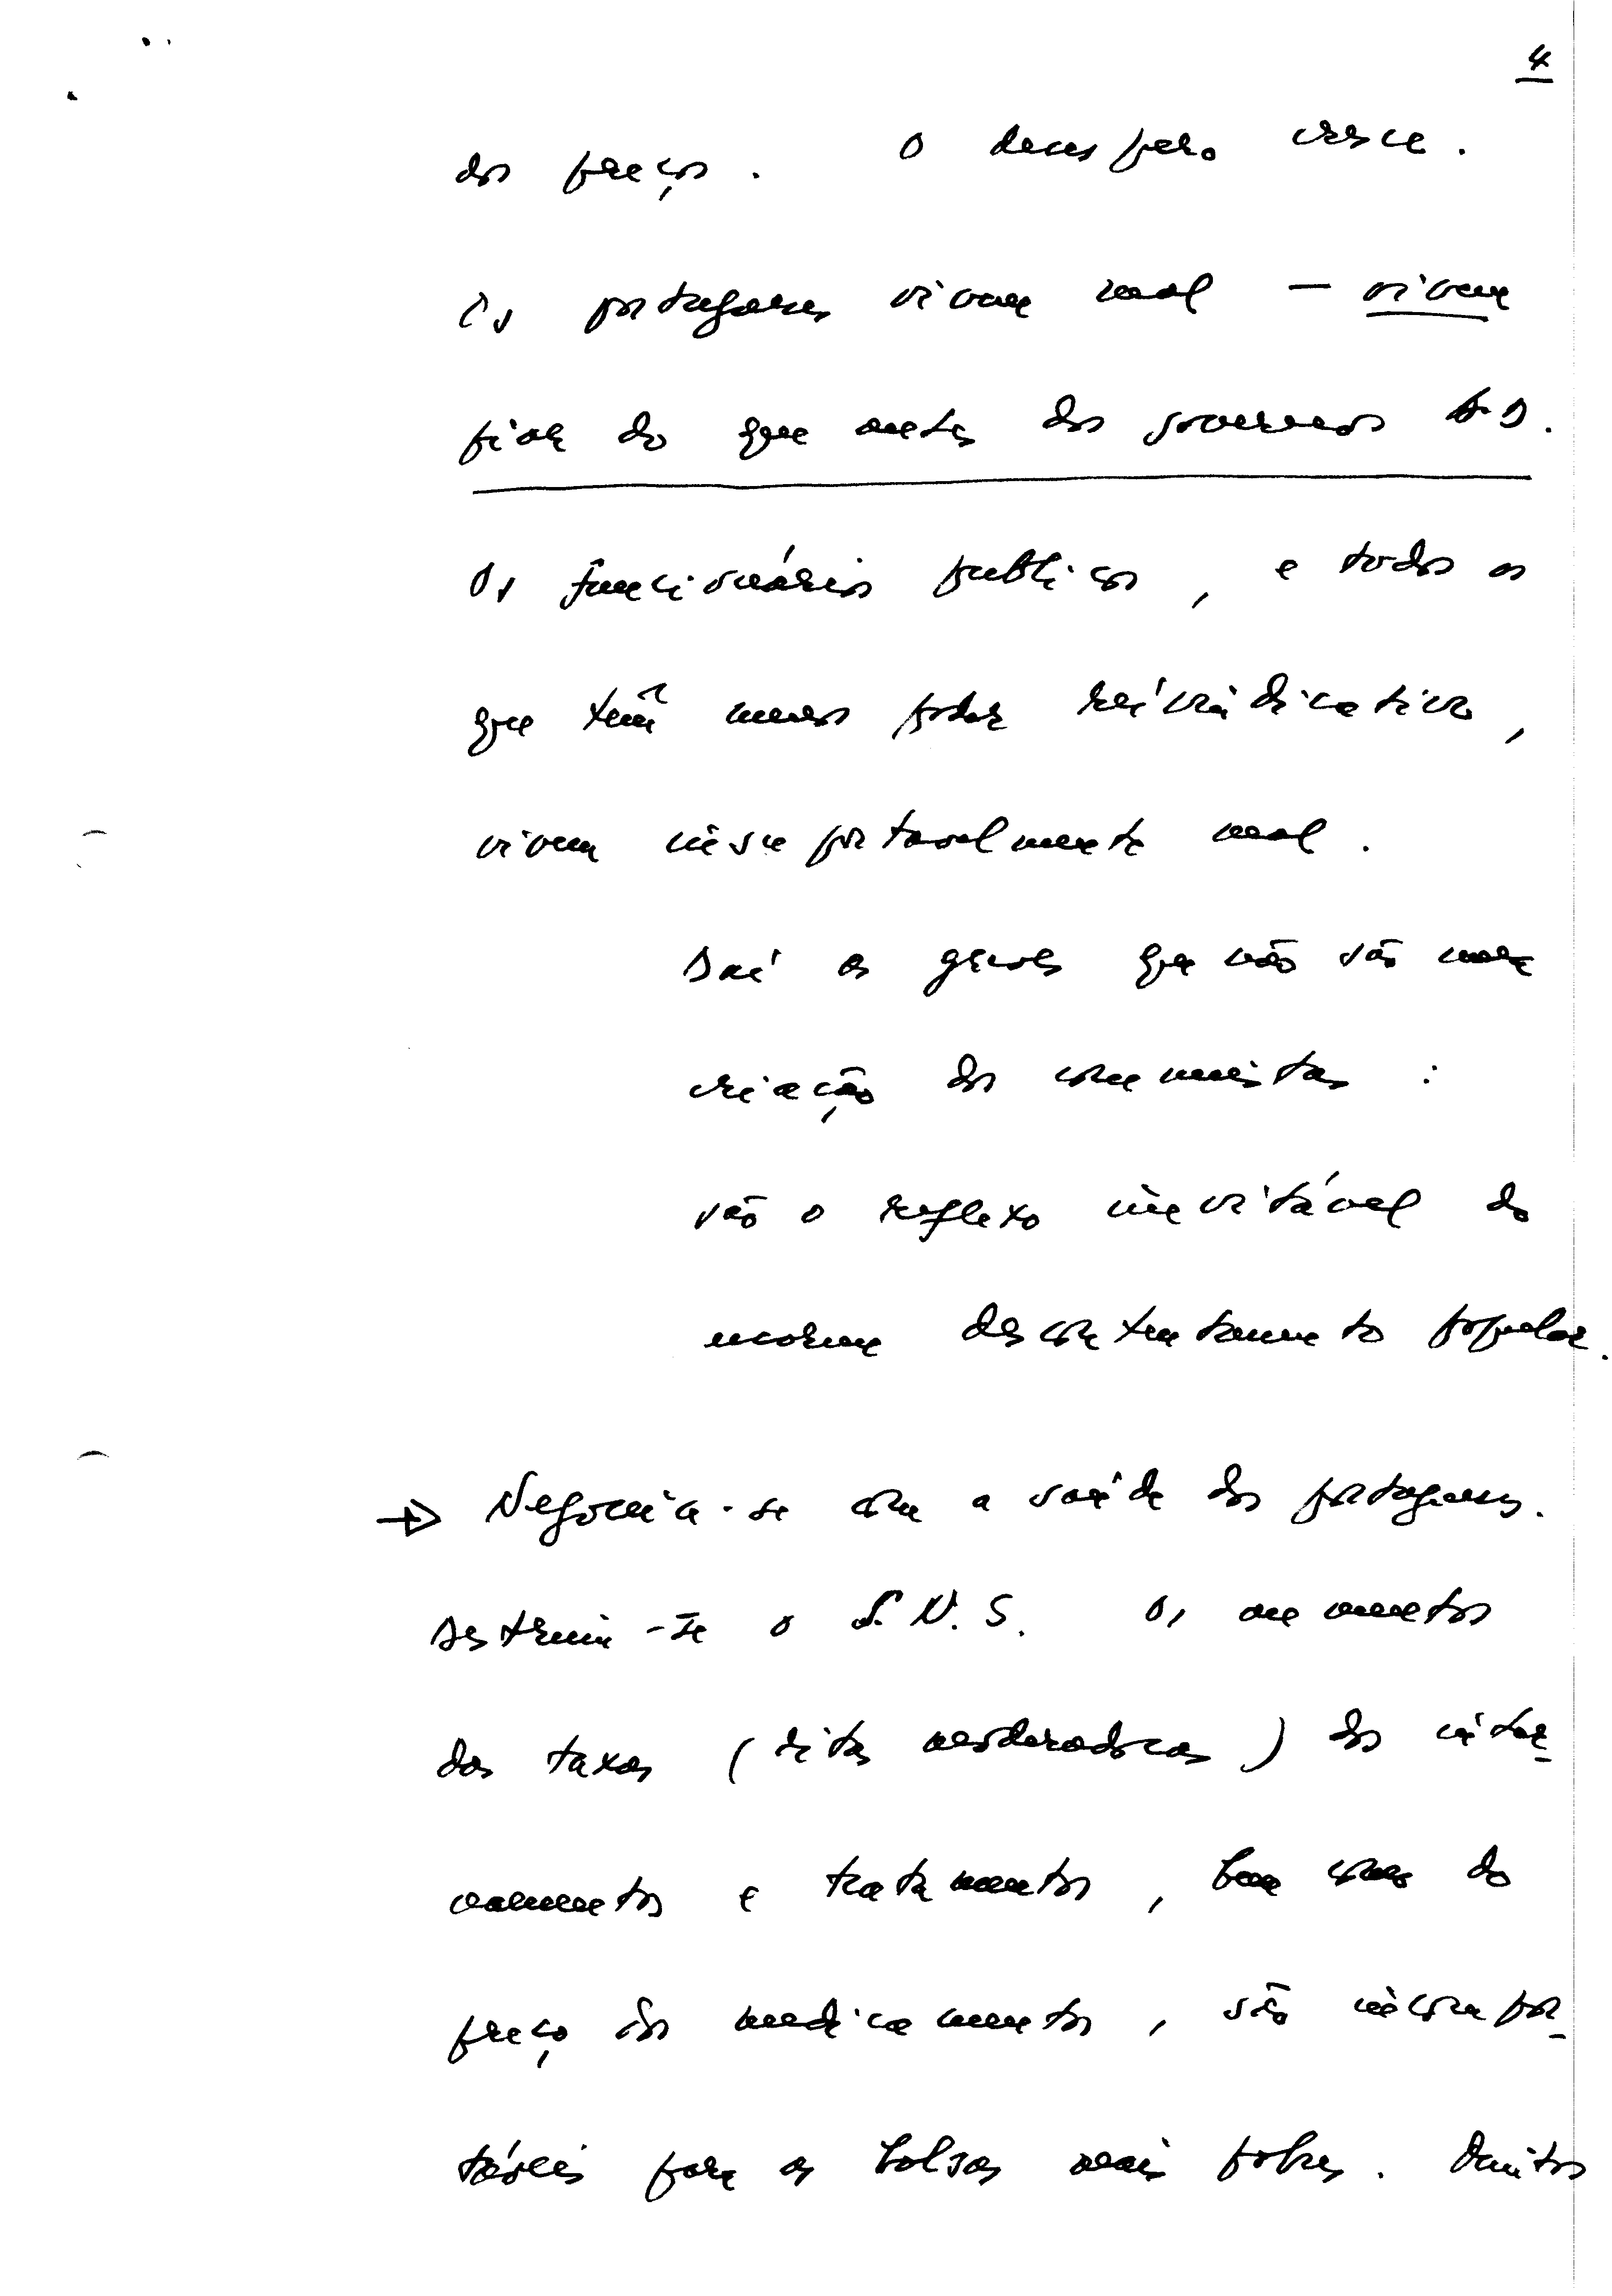 4
dos preços. O desespero cresce.
Os portugueses vivem mal — vivem
pior do que antes dos governos A.D.
Os funcionários publicos, e todos os
que têm menos poder reivindicativo,
vivem insuportavelmente mal.
Daí as greves que não são uma
criação dos comunistas :
são o reflexo inevitável do
enorme descontentamento popular.
→ Negoceia-se com a saúde dos portugueses.
Destrui-se o S.N.S. Os aumentos
das taxas (ditas moderadoras) dos inter-
namentos e tratamentos, bem como do
preço dos medicamentos, são incompor-
táveis para as bolsas mais pobres. Muitos